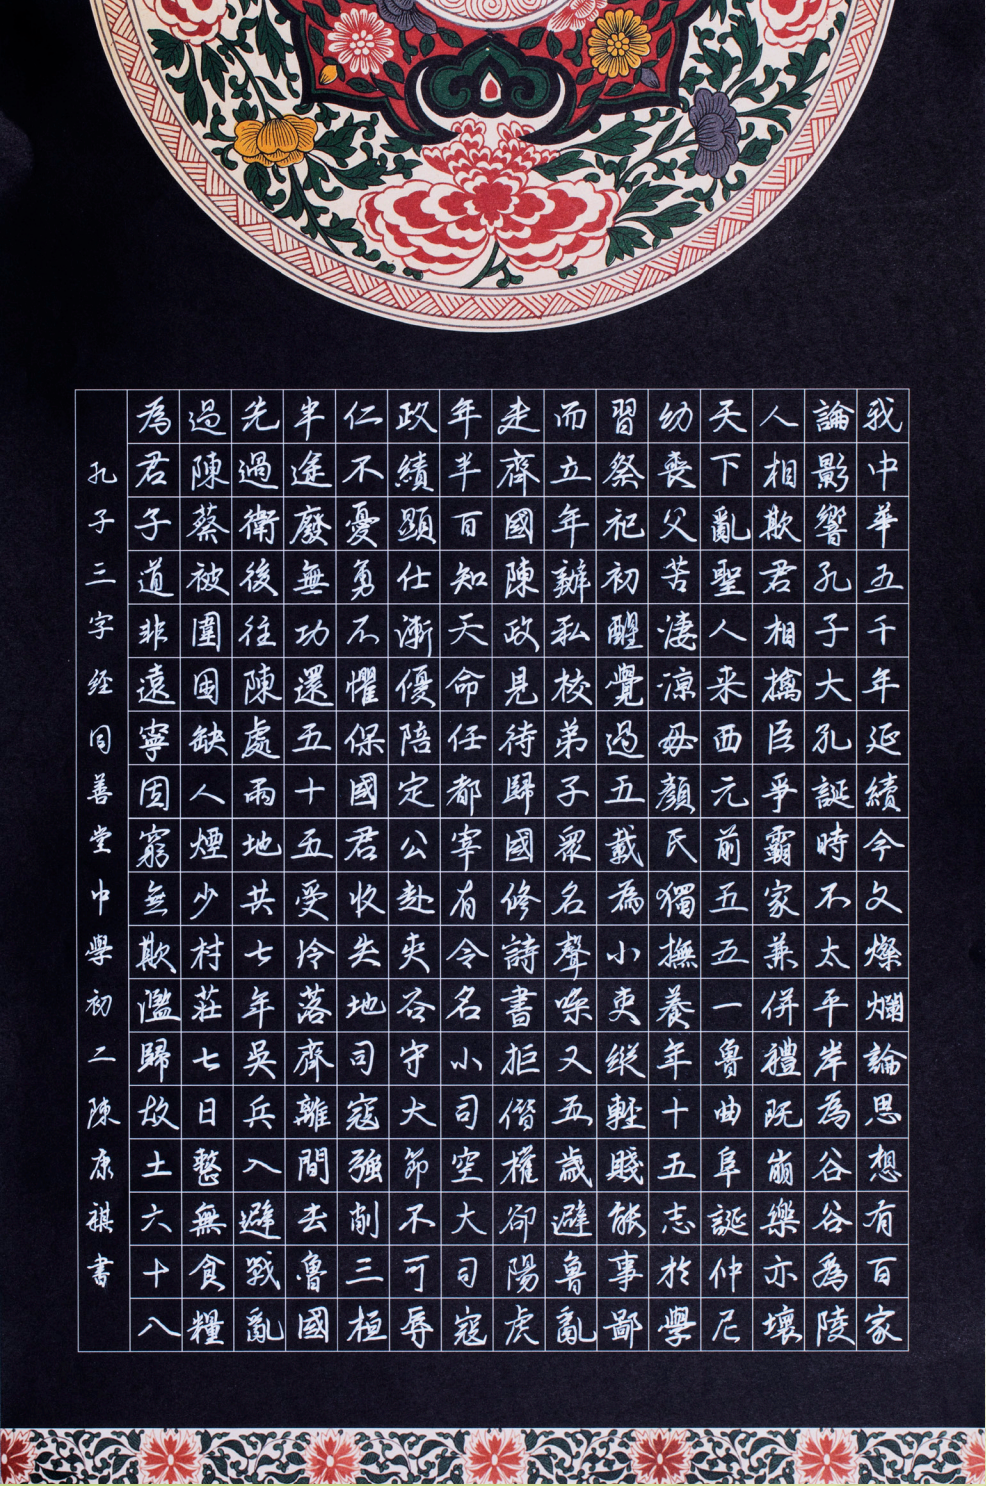 我中華五千年延續今文燦爛論思想有百家
論影響孔子大孔誕時不太平岸為谷谷為陵
人相欺君相擒臣爭霸家兼併禮既崩樂亦壞
天下亂聖人来西元前五五一魯曲阜誕仲尼
幼喪父苦淒涼毋顏民獨撫養年十五志於學
習祭祀初醒覺過五載為小吏縱輕賤能事鄙
而立年辦私校弟子衆名聲噪又五歲避魯亂
走齊國陳政見待歸國修詩書拒僭權卻陽虎
年半百知天命任都宰有令名小司空大司寇
政績顯仕漸優陪定公赴夾谷守大節不可辱
仁不憂勇不懼保國君收失地司寇強削三桓
半途廢無功還五十五受冷落齊離間去魯國
先過衛後往陳處兩地共七年吳兵入避戰亂
過陳蔡被圍困缺人煙少村莊七日整無食糧
為君子道非遠寧固窮無欺濫歸故土六十八
孔子三字經同善堂中學初二陳康祺書